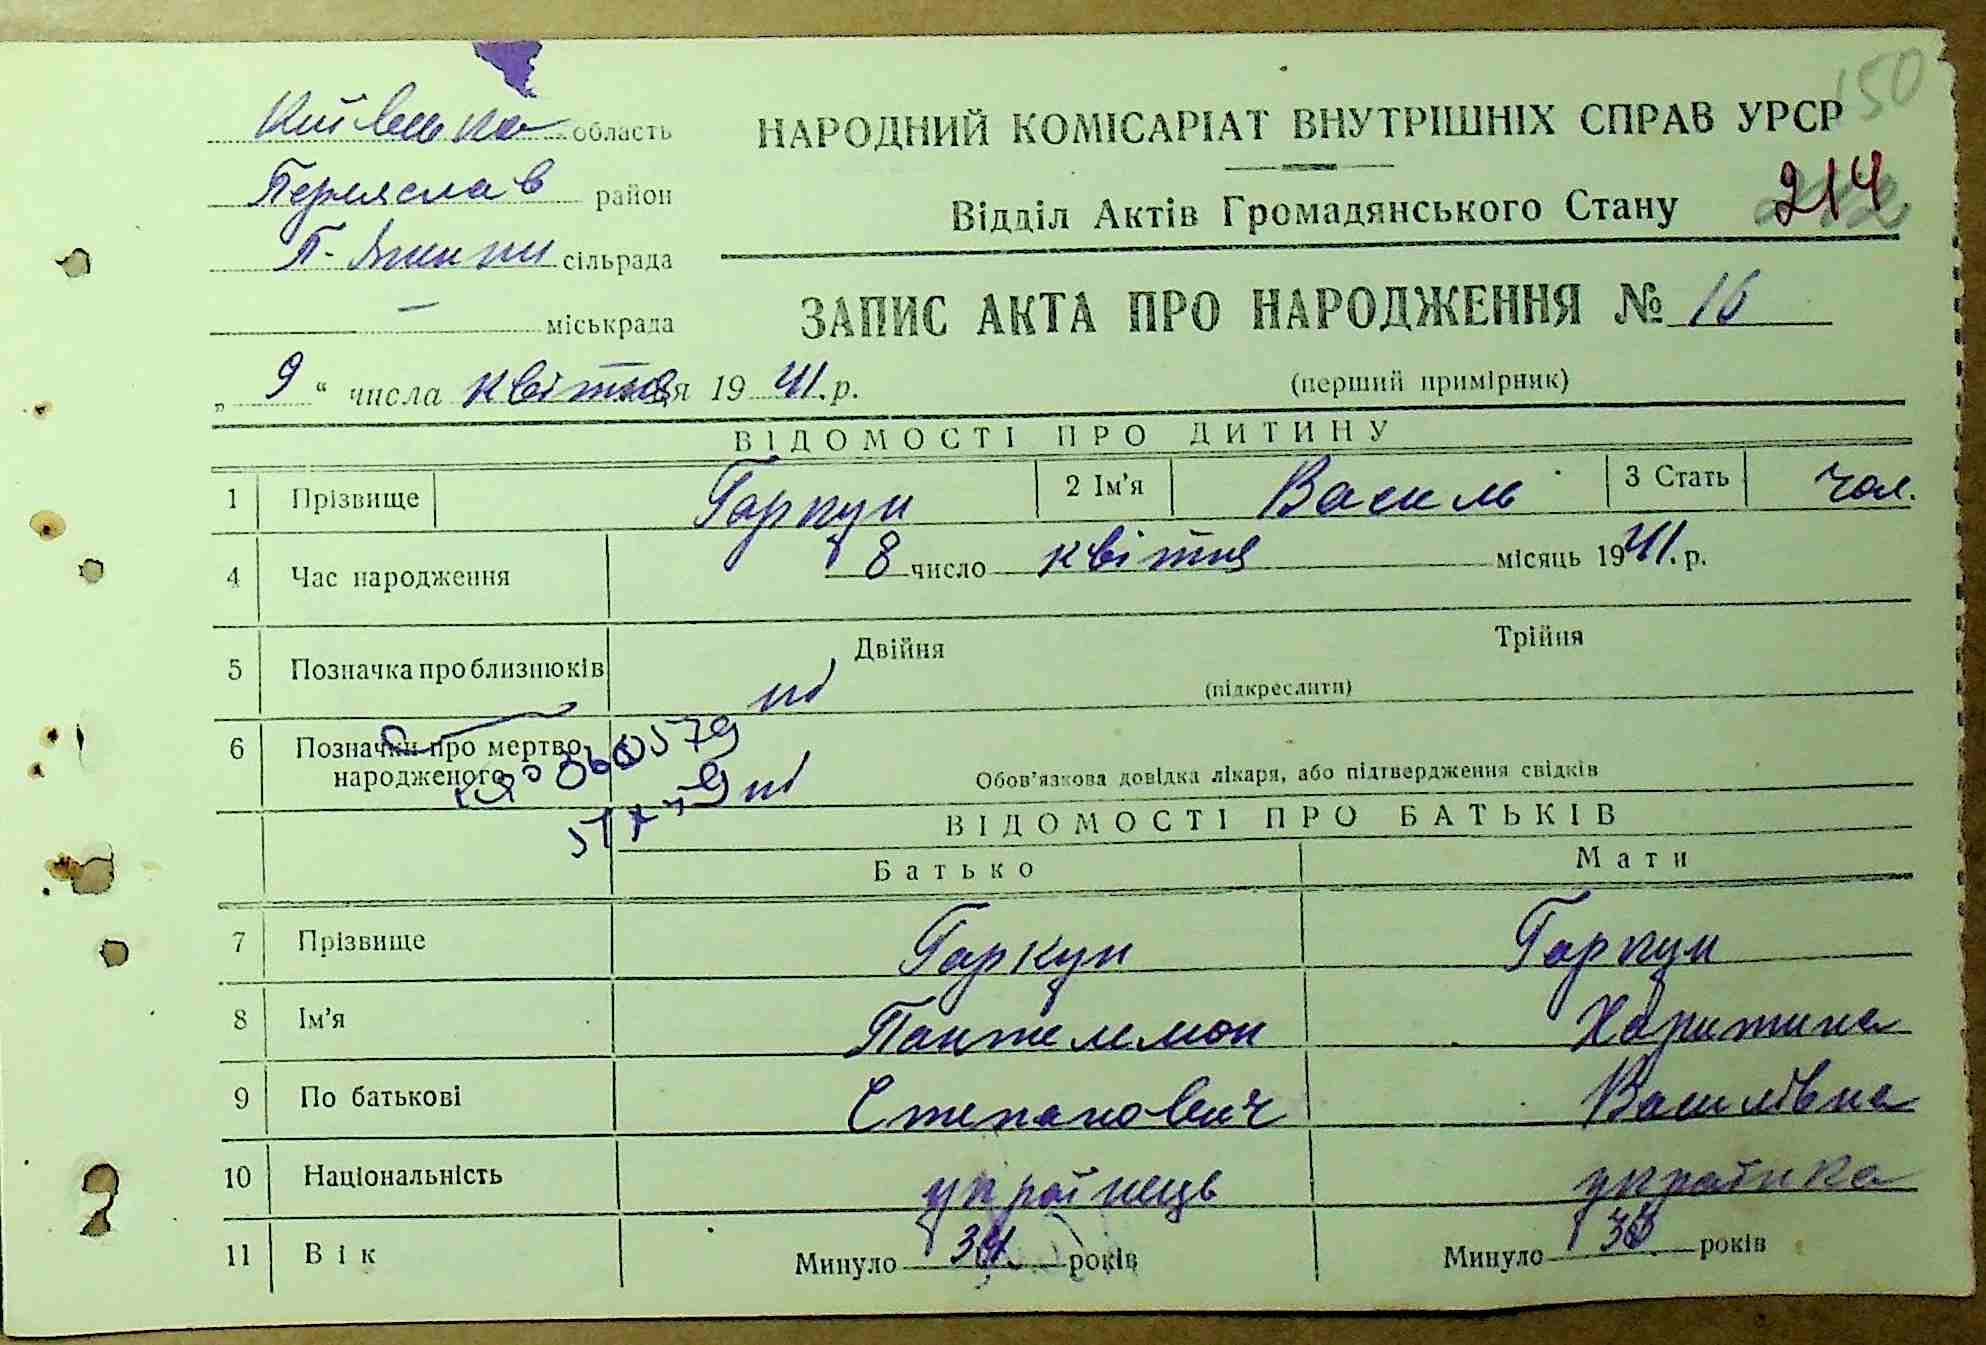 150
Київська область
НАРОДНИЙ КОМІСАРІАТ ВНУТРІШНІХ СПРАВ УРСР
Переяслав район
Відділ Актів Громадянського Стану 214
П- сільрада
— міськрада
ЗАПИС АКТА ПРО НАРОДЖЕННЯ № 16
„ 9 “ числа квітня 1941.р.
(перший примірник)
ВІДОМОСТІ ПРО ДИТИНУ
1 Прізвище Гаркун 2 Ім’я Василь 3 Стать чол.
4 Час народження 8 число квітня місяць 1941.р.
5 Позначка про близнюків Двійня Трійня
(підкреслити)
6 Позначки про мертво-
народженого Обов’язкова довідка лікаря, або підтвердження свідків
ВІДОМОСТІ ПРО БАТЬКІВ
Батько Мати
7 Прізвище Гаркун Гаркун
8 Ім’я Пантелемон Харитина
9 По батькові Степанович Василівна
10 Національність українець українка
11 Вік Минуло 34 років Минуло років